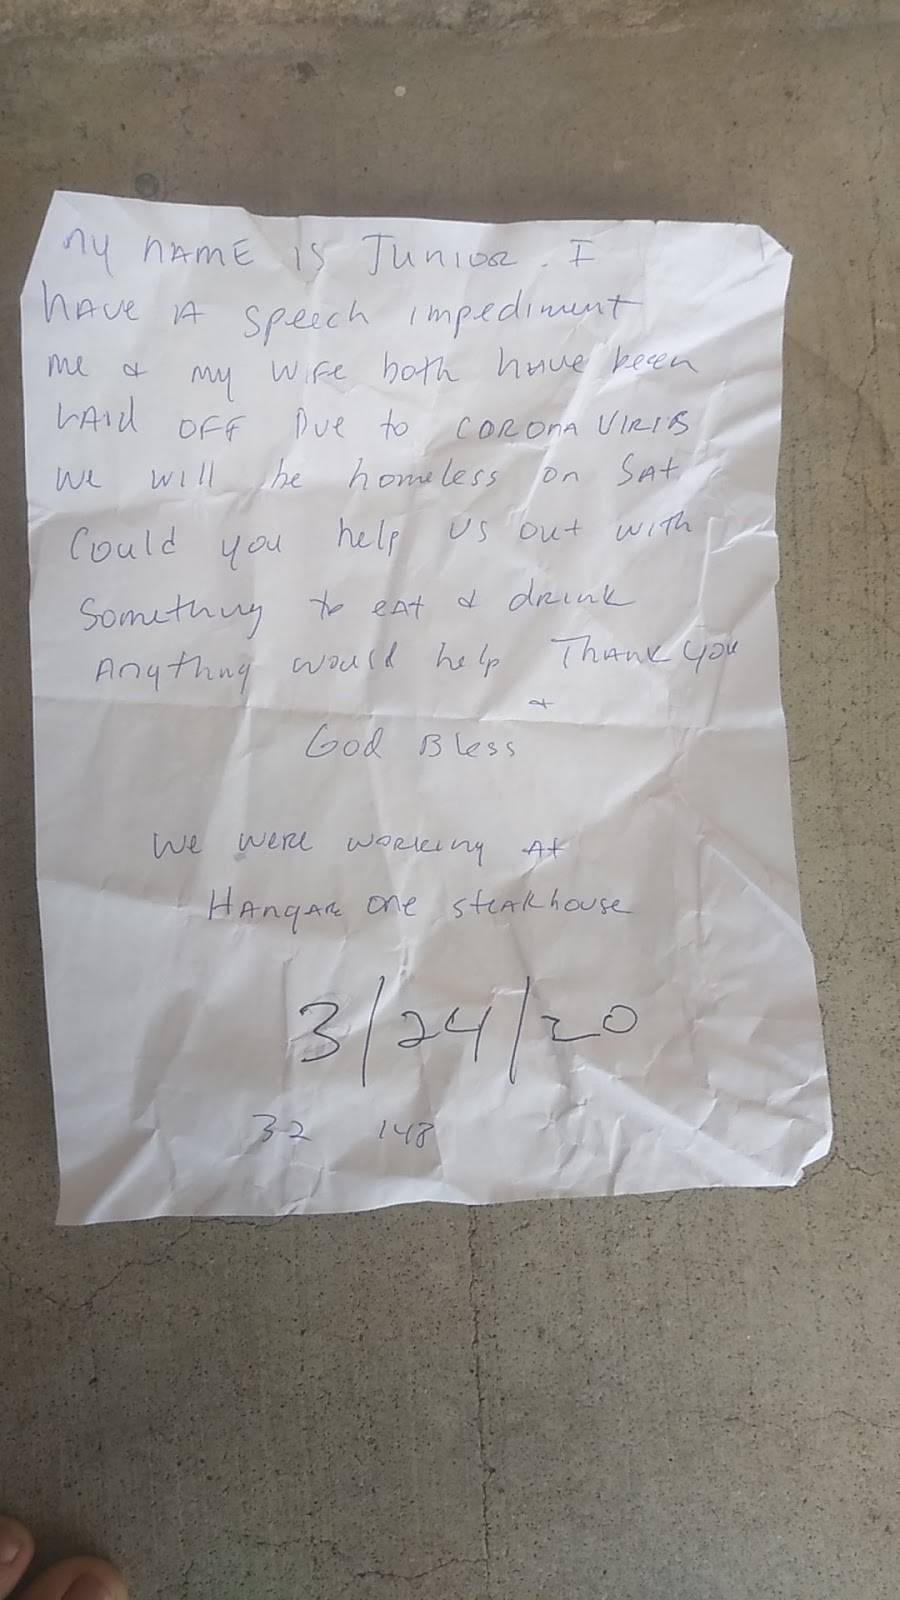 My NAME is JUNIOR. I
HAVE A speech impediment
me & my wife both have been
LAID OFF DUE to CORONA VIRIS
We will be homeless on SAt
Could you help us out with
Something to eAt & DRINK
Anything would help THANK you
&
God Bless
We were working At
HANgAR one steakhouse
3/24/20
32 148